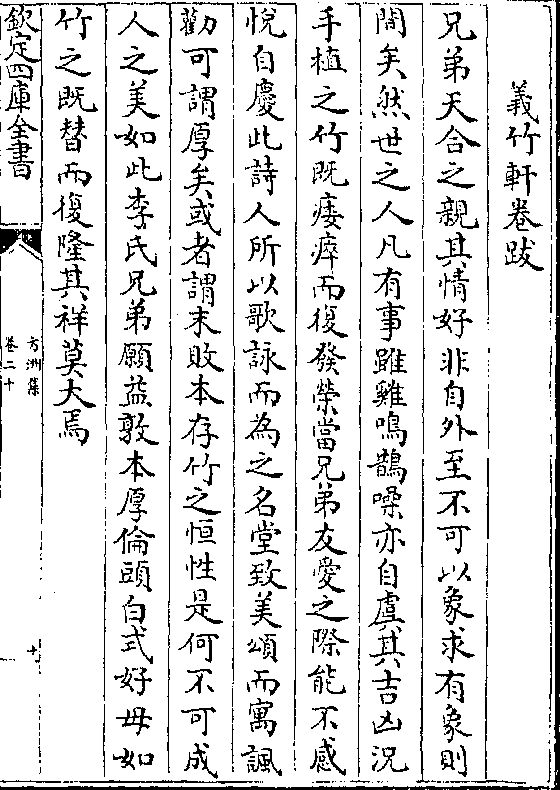 義竹軒卷跋
兄弟天合之親其情好非自外至不可以象求有象則
闊矣然世之人凡有事雖雞鳴鵲噪亦自虞其吉凶況
手植之竹既痿瘁而復發榮當兄弟友愛之際能不感
悅自慶此詩人所以歌詠而為之名堂致美頌而寓諷
勸可謂厚矣或者謂末敗本存竹之恒性是何不可成
人之美如此李氏兄弟願益敦本厚倫頭白式好毋如
竹之既替而復隆其祥莫大焉
欽定四庫全書
方洲集
卷二十